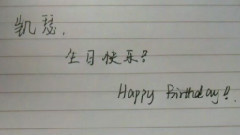 凯瑟,
生日快乐?
Happy Birthday!